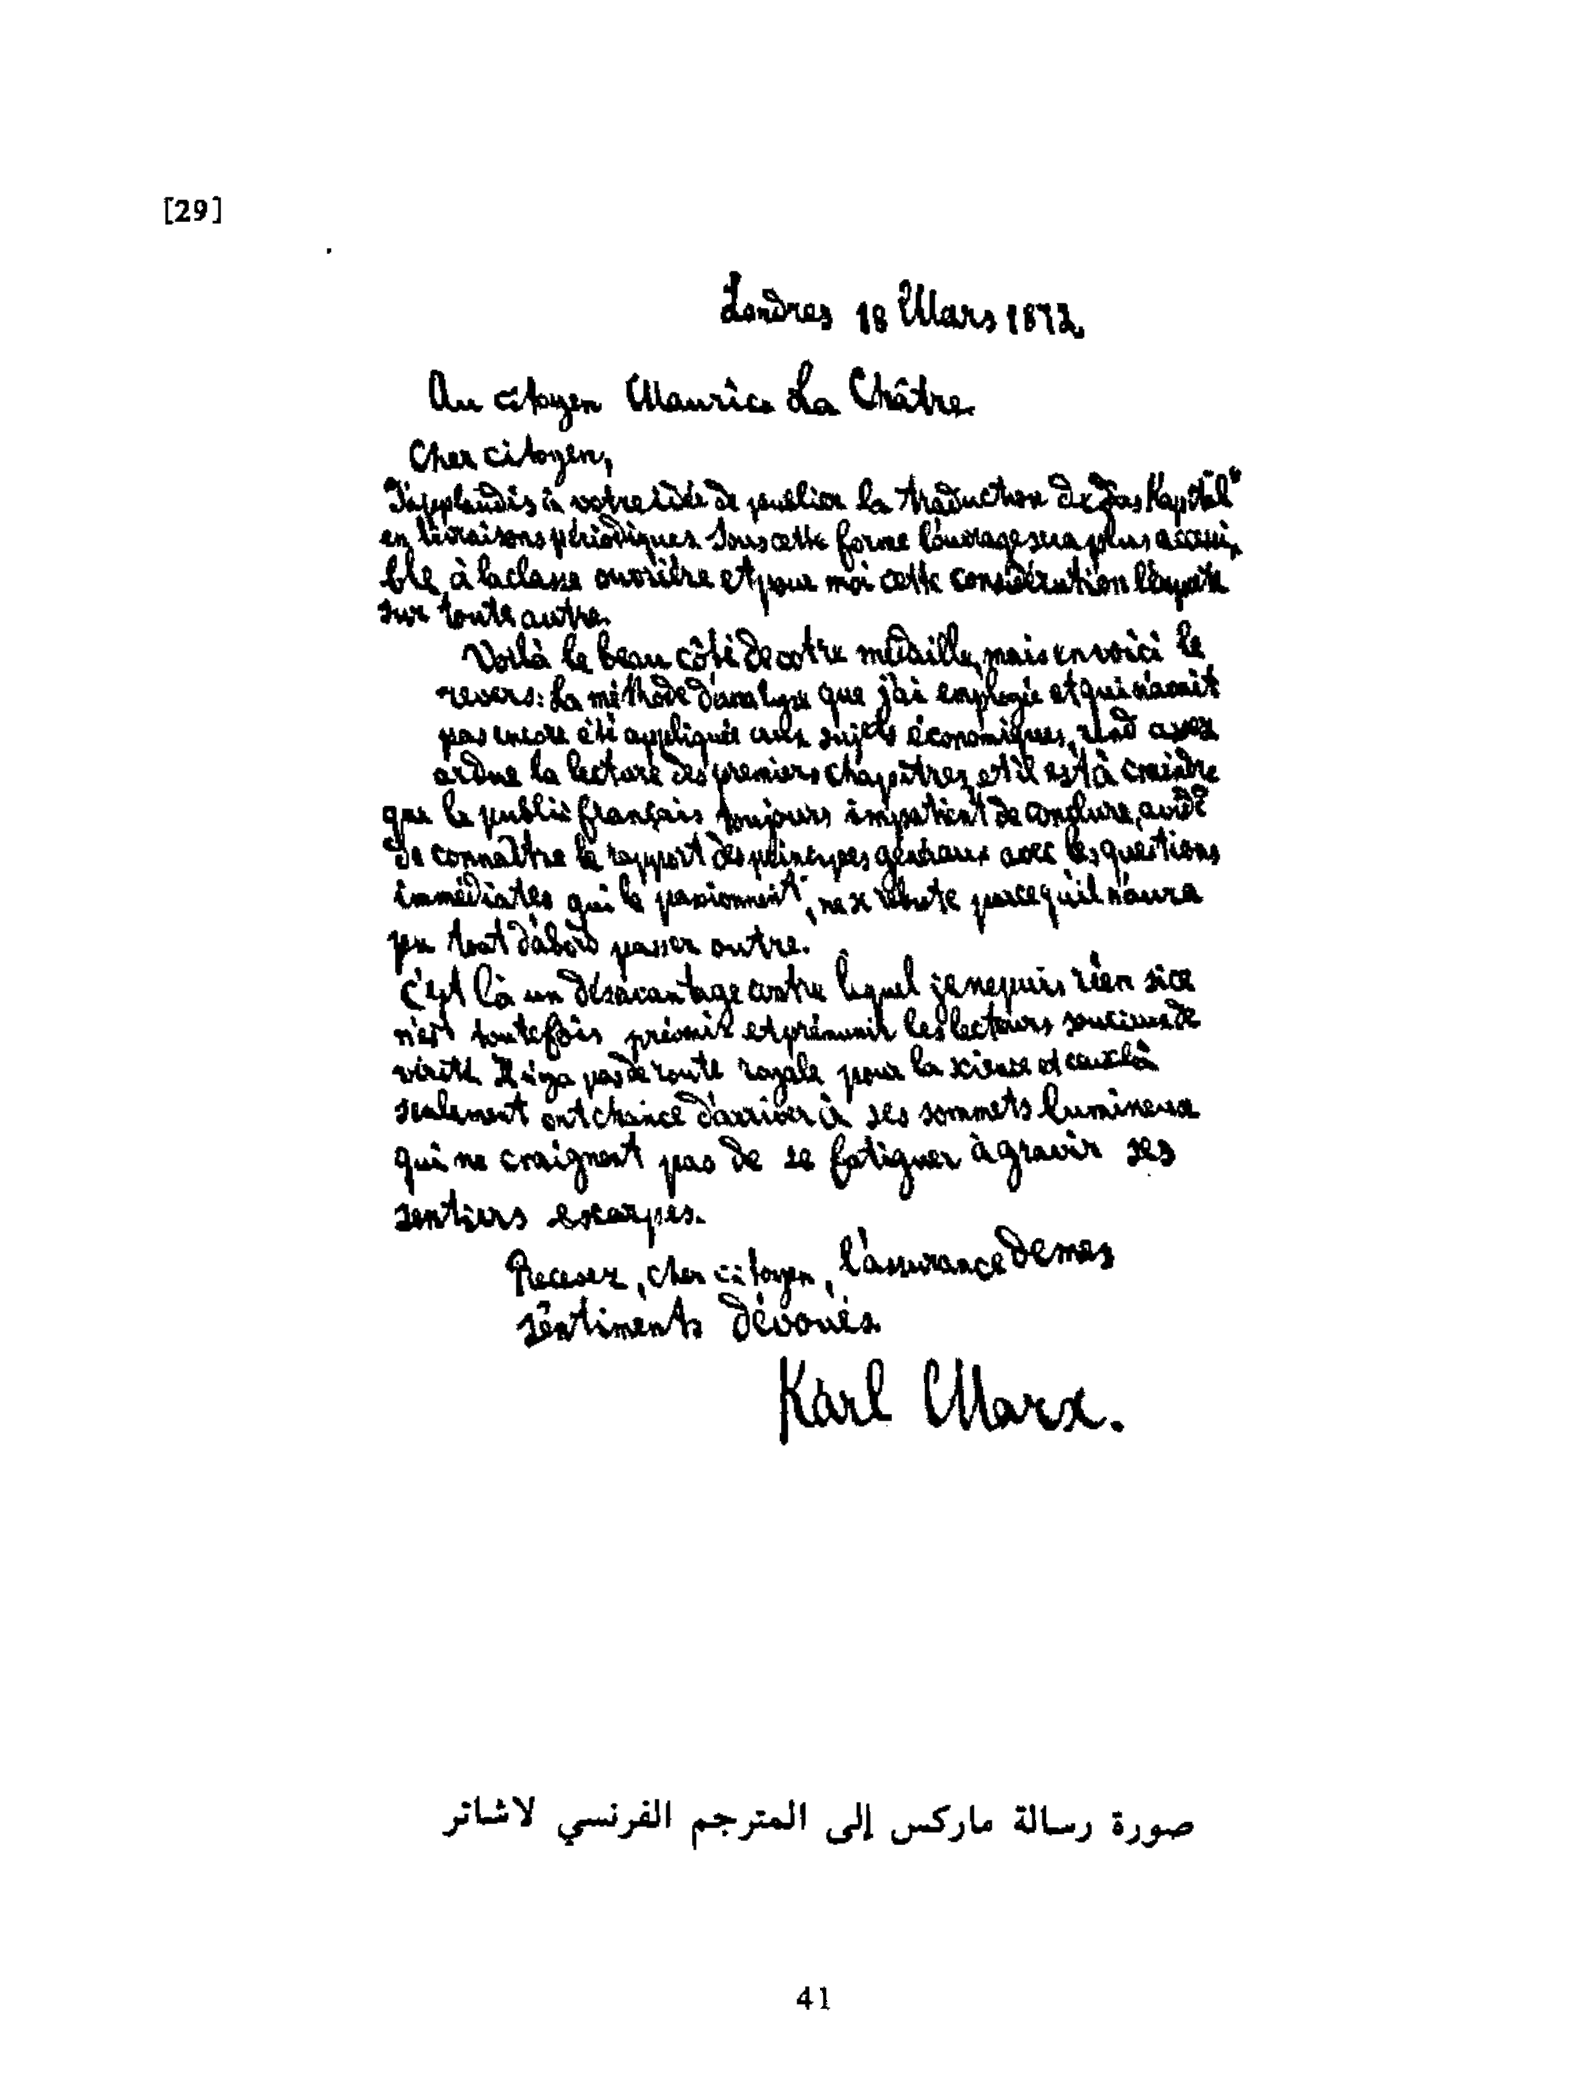 [29]
Londres 18 Mars 1872.
Au citoyen Maurice La Châtre.
Cher citoyen,
J'applaudis à votre idée de publier la traduction de „Das Kapital“
en livraisons périodiques. Sous cette forme l'ouvrage sera plus accessi-
ble à la classe ouvrière et pour moi cette considération l'emporte
sur toute autre.
Voilà le beau côté de votre médaille, mais en voici le
revers: La méthode d'analyse que j'ai employée et qui n'avait
pas encore été appliquée aux sujets économiques, rend assez
ardue la lecture des premiers chapitres, et il est à craindre
que le public français toujours impatient de conclure, avide
de connaître le rapport des principes généraux avec les questions
immédiates qui le passionnent, ne se rebute parcequ'il n'aura
pu tout d'abord passer outre.
C'est là un désavantage contre lequel je ne puis rien si ce
n'est toutefois prévenir et prémunir les lecteurs soucieux de
vérité. Il n'y a pas de route royale pour la science et ceux-là
seulement ont chance d'arriver à ses sommets lumineux
qui ne craignent pas de se fatiguer à gravir ses
sentiers escarpés.
Recevez, cher citoyen, l'assurance de mes
sentiments dévoués.
Karl Marx.
صورة رسالة ماركس إلى المترجم الفرنسي لاشاتر
41